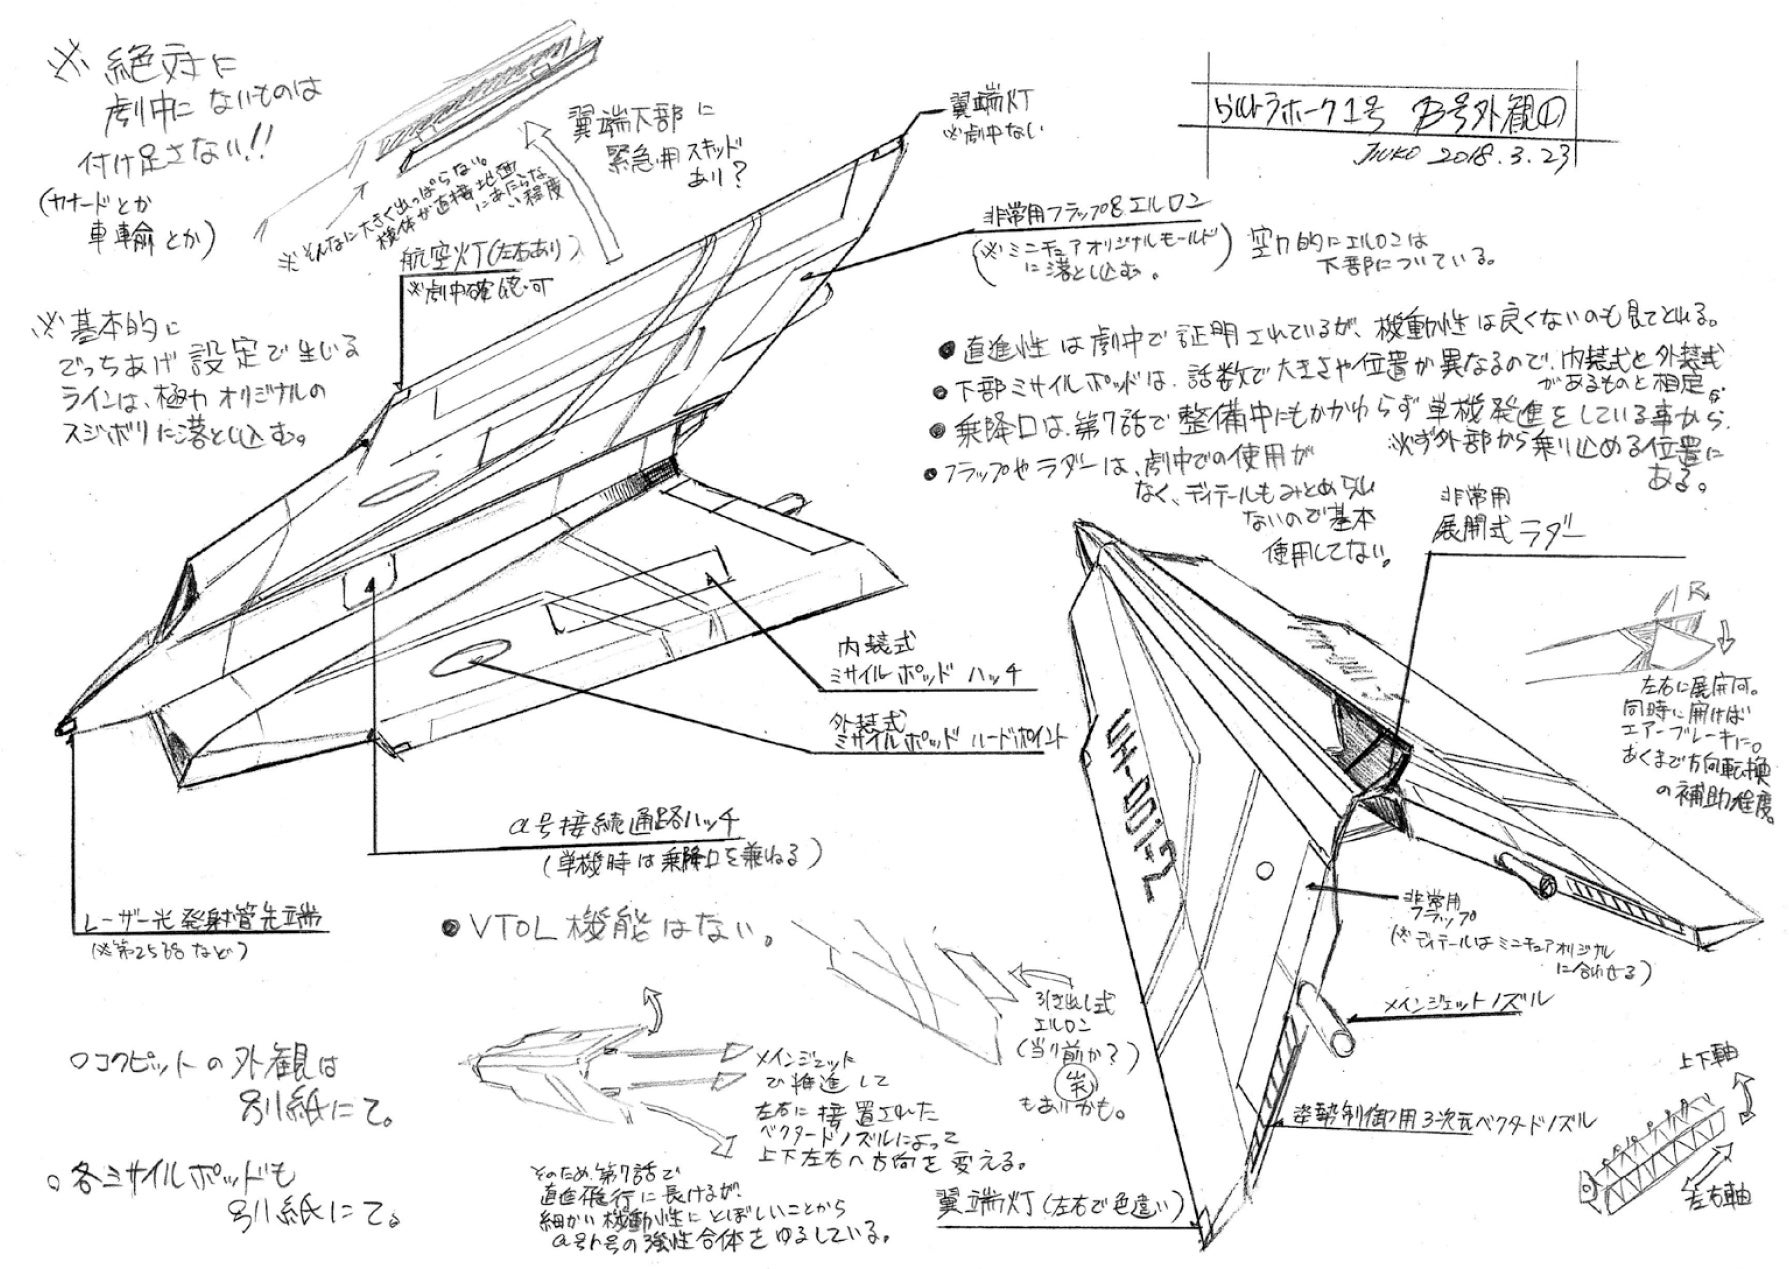 ※絶対に
劇中にないものは
付け足さない!!
(カナードとか
車輪とか)
翼端下部に
緊急用スキッド
あり?
※そんなに大きく出っぱらない。
機体が直接地面
にあたらな
い程度
航空灯(左右あり)
※劇中確認可
翼端灯
※劇中ない
ウルトラホーク1号 β号外観①
2018.3.23
非常用フラップ&エルロン
(※ミニチュアオリジナルモールド
に落とし込む。)
空力的にエルロンは
下部についている。
※基本的に
でっちあげ設定で生じる
ラインは、極力オリジナルの
スジボリに落とし込む。
●直進性は劇中で証明されているが、機動性は良くないのも見てとれる。
●下部ミサイルポッドは、話数で大きさや位置が異なるので、内装式と外装式
があるものと想定。
●乗降口は、第7話で整備中にもかかわらず単機発進をしている事から、
必ず外部から乗り込める位置に
ある。
●フラップやラダーは、劇中での使用が
なく、ディテールもみとめられ
ないので基本
使用してない。
非常用
展開式ラダー
R
左右に展開可。
同時に開けば
エアーブレーキに。
あくまで方向転換
の補助程度。
内装式
ミサイルポッドハッチ
外装式
ミサイルポッドハードポイント
α号接続通路ハッチ
(単機時は乗降口を兼ねる)
レーザー光発射管先端
(※第25話など)
●VTOL機能はない。
UH-001-2
非常用
フラップ
(※ディテールはミニチュアオリジナル
に合わせる)
メインジェットノズル
引き出し式
エルロン
(当り前か?)
(笑)
もありかも。
○コクピットの外観は
別紙にて。
○各ミサイルポッドも
別紙にて。
メインジェット
で推進して
左右に設置された
ベクタードノズルによって
上下左右へ方向を変える。
そのため、第7話で
直進飛行に長けるが、
細かい機動性にとぼしいことから
α号とγ号の強性合体をゆるしている。
姿勢制御用3次元ベクタードノズル
翼端灯(左右で色違い)
上下軸
左右軸